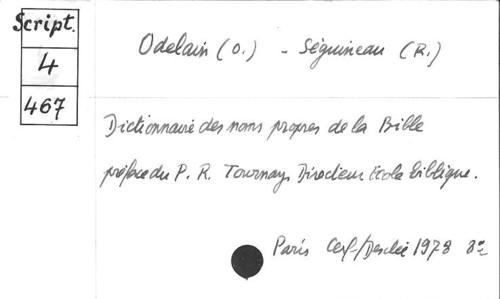 Script.
4
467
Odelain (O.) - Séguineau (R.)
Dictionnaire des noms propres de la Bible
préface du P. R. Tournay, Directeur Ecole biblique.
Paris Cerf/Desclée 1978 8°